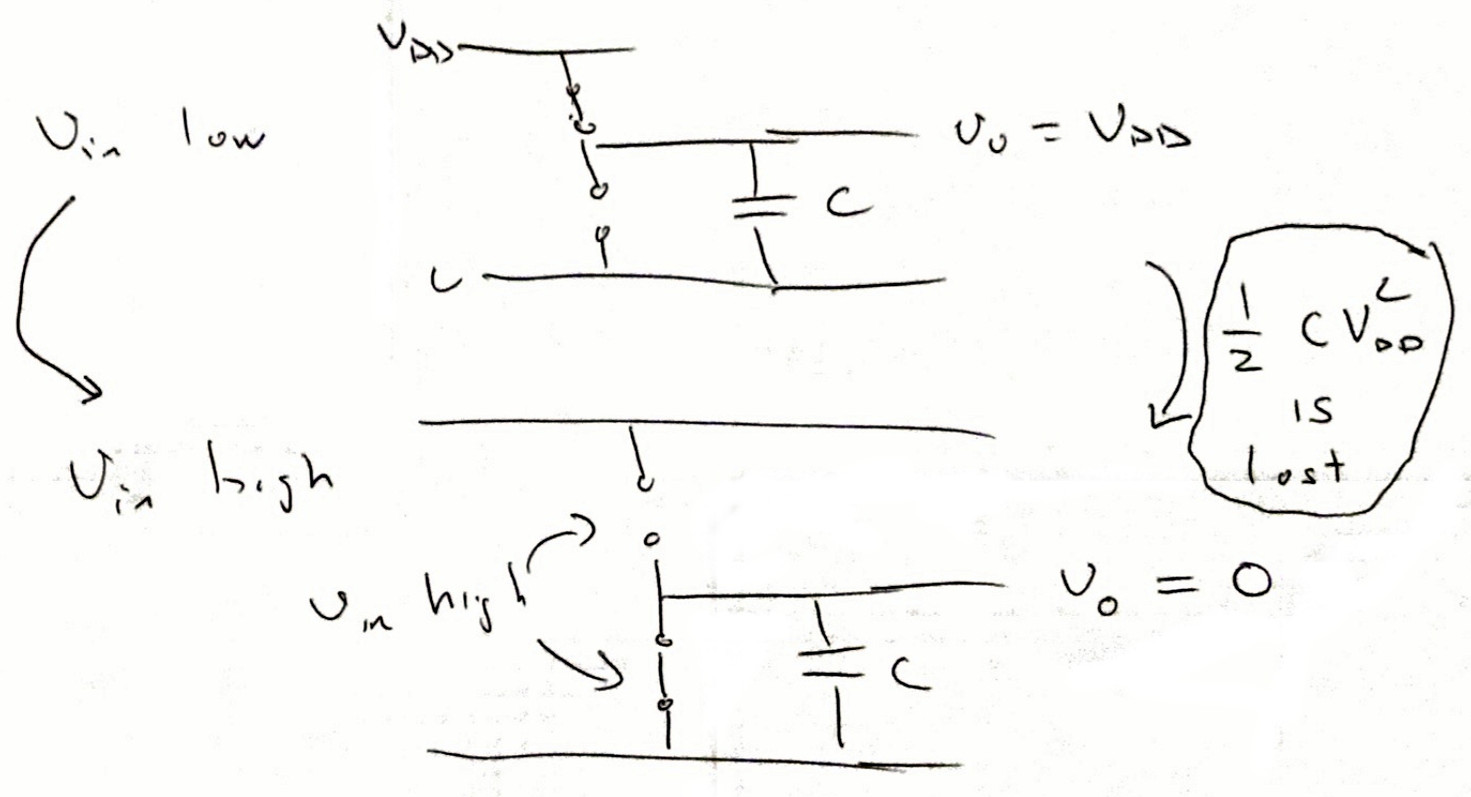 V_DD
V_in low
v_o = V_DD
C
1/2 C V_DD^2
is
lost
V_in high
v_in high
v_o = 0
C